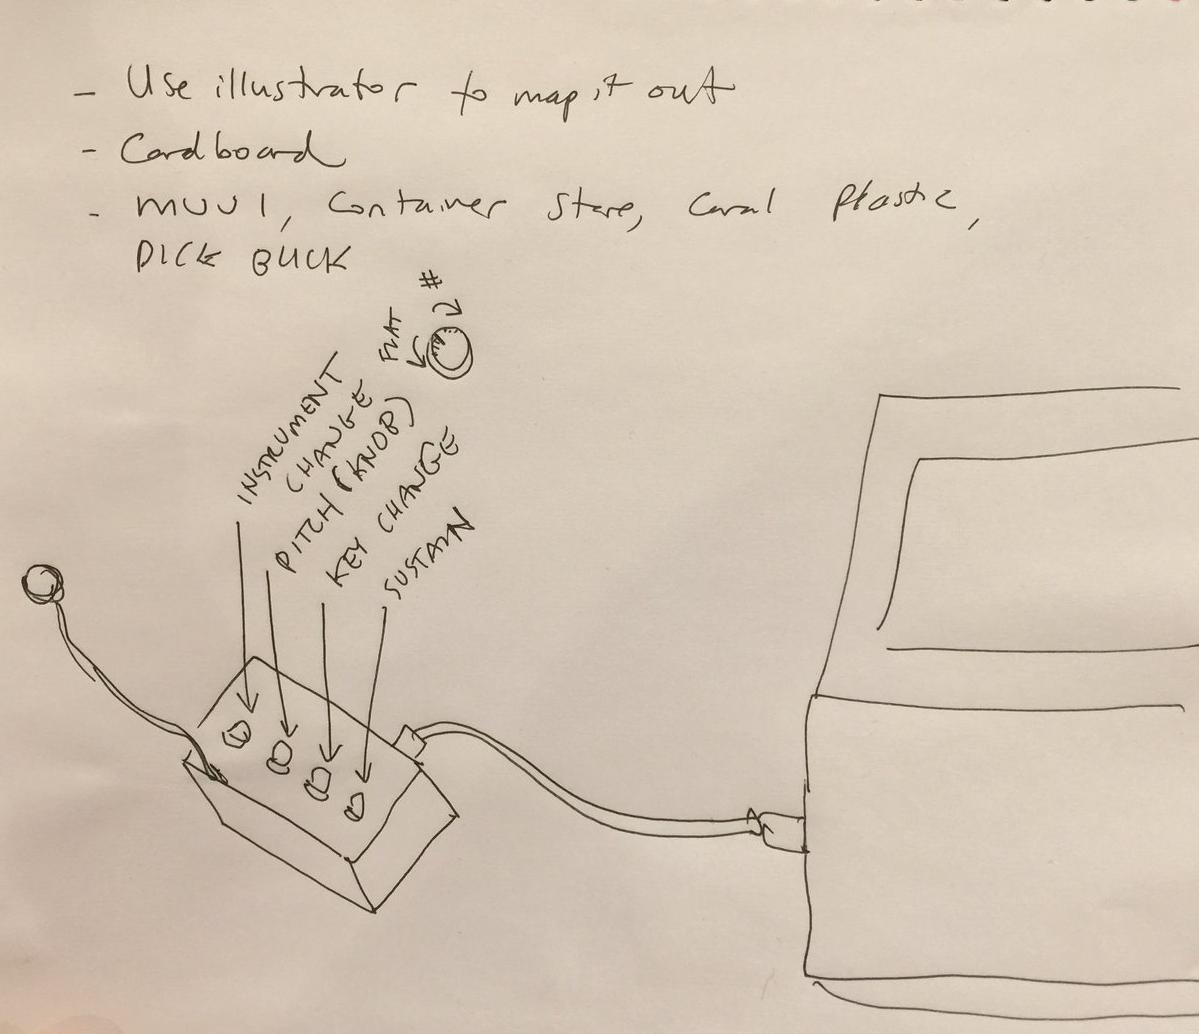 - Use illustrator to map it out
- Cardboard
- MUJI, Container Store, Canal Plastic,
DICK BLICK
#
FLAT
INSTRUMENT
CHANGE
PITCH (KNOB)
KEY CHANGE
SUSTAIN